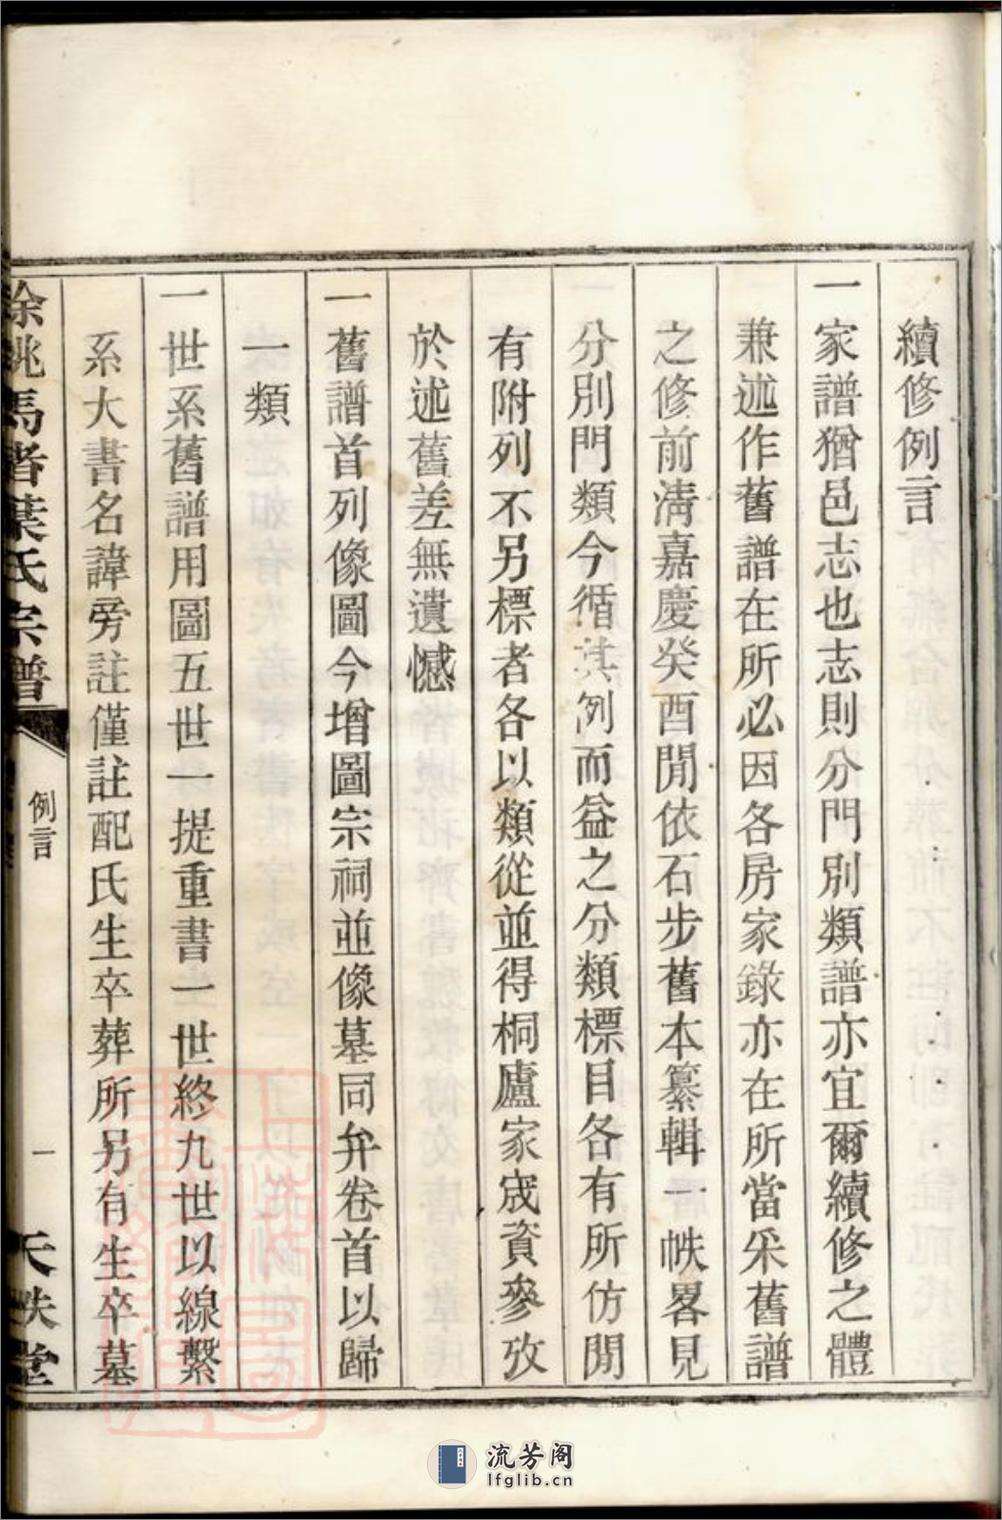 續修例言
一家譜猶邑志也志則分門別類譜亦宜爾續修之體
兼述作舊譜在所必因各房家錄亦在所當采舊譜
之修前清嘉慶癸酉閒依石步舊本纂輯一帙畧見
分別門類今循其例而益之分類標目各有所仿閒
有附列不另標者各以類從並得桐廬家宬資參攷
於述舊差無遺憾
一舊譜首列像圖今增圖宗祠並像墓同弁卷首以歸
一類
一世系舊譜用圖五世一提重書一世終九世以線繫
系大書名諱旁註僅註配氏生卒葬所另有生卒墓
餘姚馬者葉氏宗譜
例言
一
天帙堂
流芳阁
lfglib.cn